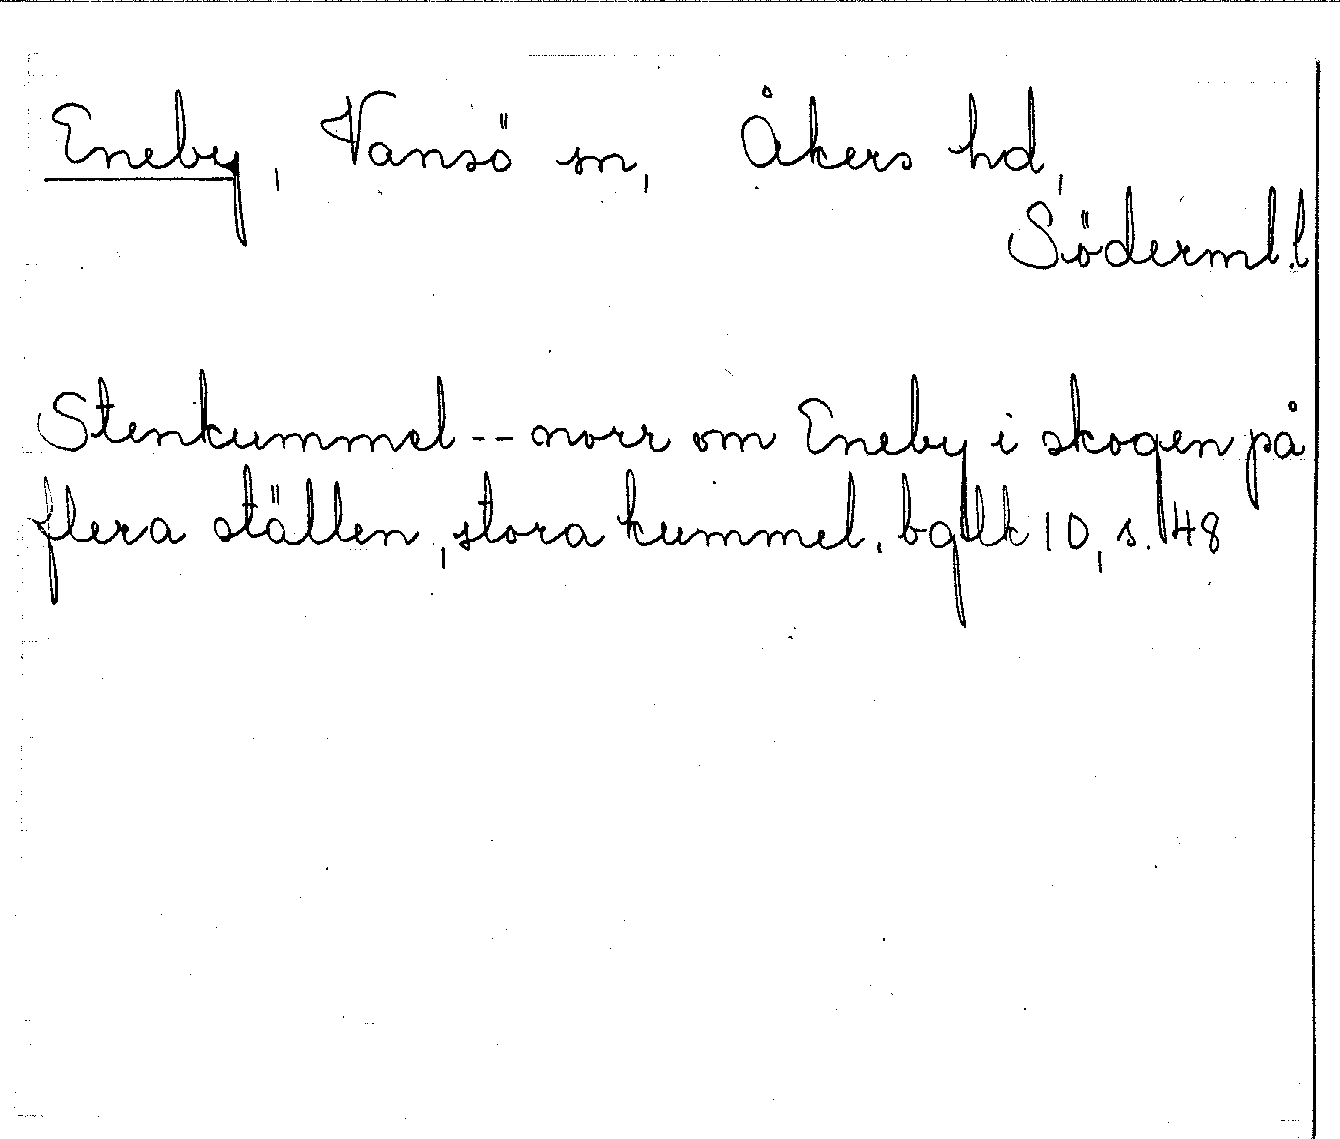 Eneby, Vansö sn, Åkers hd,
Söderml.l
Stenkummel -- norr om Eneby i skogen på
flera ställen, stora kummel. bglk 10, s. 48